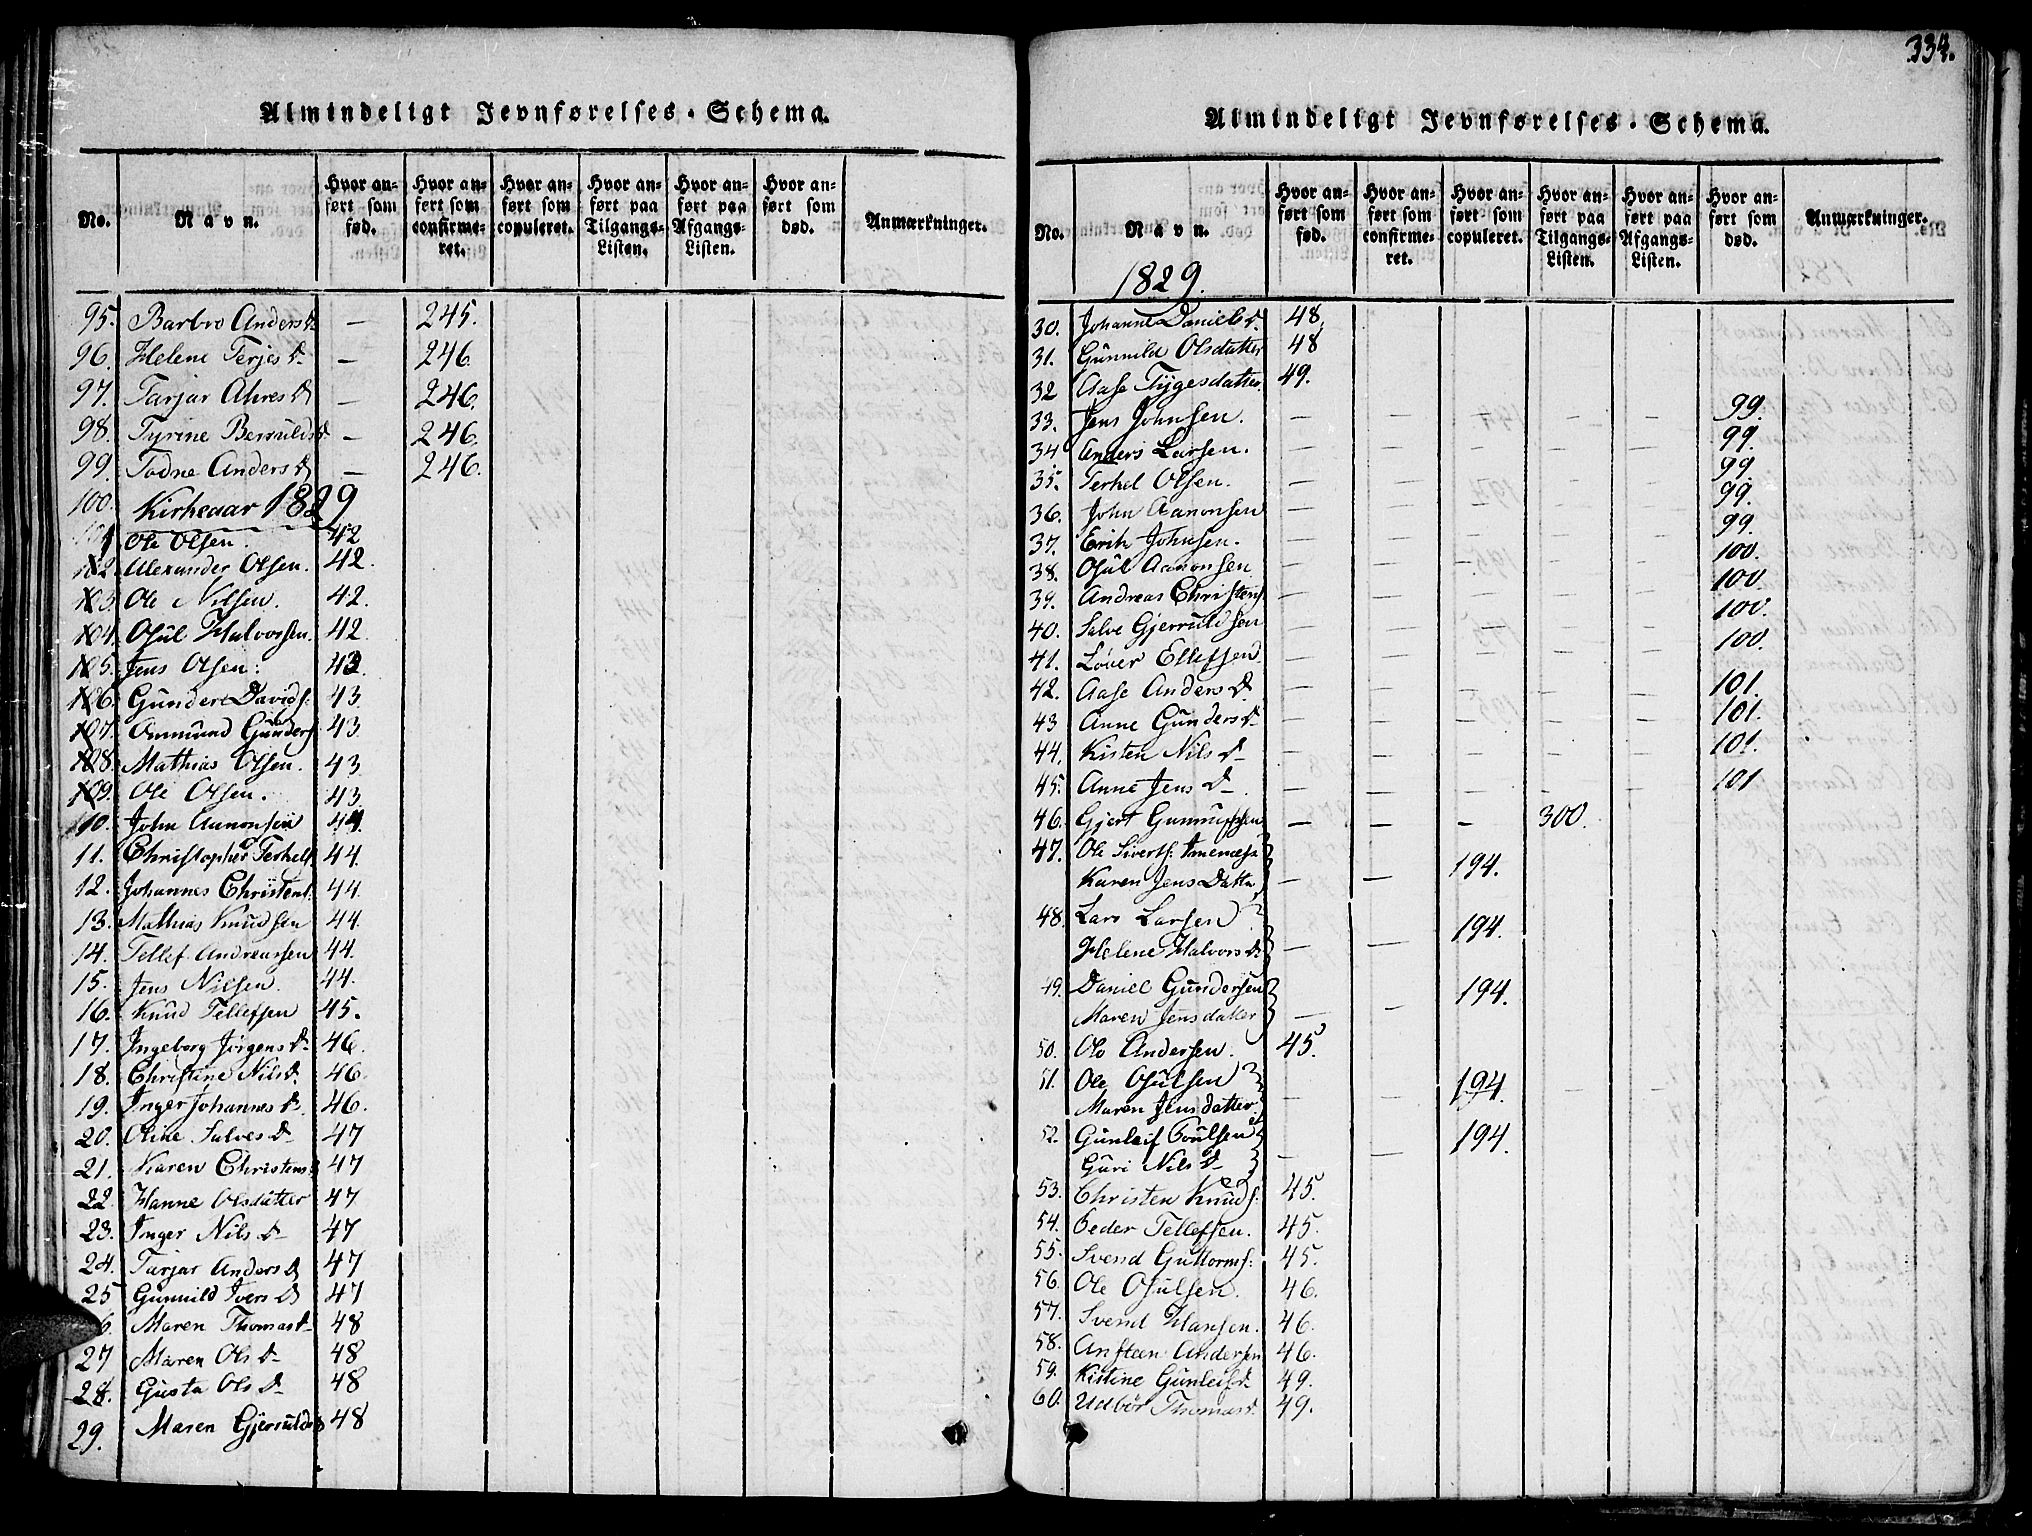 Almindeligt Jevnførelses-Schema.
No. Navn. Hvor anført som fød. Hvor anført som confirmeret. Hvor anført som copuleret. Hvor anført paa Tilgangs-Listen. Hvor anført paa Afgangs-Listen. Hvor anført som død. Anmærkninger.
95. Barbro Andersd. — 245.
96. Helene Terjesd. — 246.
97. Tarjar Ahresd — 246.
98. Tyrine Berruldsd — 246.
99. Todne Andersd — 246.
100. Kirkeaar 1829
1 Ole Olsen. 42
102. Alexander Olsen. 42.
103. Ole Nilsen. 42.
104. Osül Halvorsen. 42.
105. Jens Olsen. 42.
106. Gunder Davids: 43.
107. Omund Gunders 43.
108. Mathias Olsen. 43.
109. Ole Olsen. 43.
10. John Aanonsen 44.
11. Christopher Terkels 44.
12. Johannes Christens: 44.
13. Mathias Knudsen 44.
14. Tellef Andreassen 44.
15. Jens Nilsen. 44.
16. Knud Tellefsen 45.
17. Ingeborg Jørgensd. 46.
18. Christine Nilsd. 46.
19. Inger Johannesd. 46.
20. Oline Salvesd. 47
21. Karen Christens 47
22. Hanne Olsdatter 47
23. Inger Nilsd. 47
24. Tarjar Andersd 47
25 Gunnild Iversd 47
6. Maren Thomasd. 48
27 Maren Olsd. 48
28. Gusta Olsd. 48
29. Maren Gjerulds 48
334.
Almindeligt Jevnførelses-Schema.
No. Navn. Hvor anført som fød. Hvor anført som confirmeret. Hvor anført som copuleret. Hvor anført paa Tilgangs-Listen. Hvor anført paa Afgangs-Listen. Hvor anført som død. Anmærkninger.
1829.
30. Johanne Danielsd. 48.
31. Gunnild Olsdatter 48
32 Aase Tygesdatter 49.
33. Jens Johnsen. — — — — — 99.
34 Anders Larsen. — — — — — 99.
35. Terkel Olsen. — — — — — 99.
36. John Aanonsen — — — — — 99.
37. Erik Johnsen. — — — — — 99.
38. Osül Aanonsen — — — — — 100.
39. Andreas Christens. — — — — — 100.
40. Salve Gjerruldsen — — — — — 100.
41. Løver Ellefsen — — — — — 100.
42. Aase Andersd — — — — — 101.
43 Anne Gundersd. — — — — — 101.
44. Kisten Nilsd. — — — — — 101.
45. Anne Jensd. — — — — — 101
46. Gjert — — — 300.
47. Ole Siverts:
Karen Jensdatter — — 194.
48. Lars Larsen
Helene Halvorsd. — — 194.
49. Daniel Gundersen
Maren Jensdatter — — 194.
50. Ole Andersen. 45.
51. Ole Osülsen
Maren Jensdatter. — — 194. — — —
52. Gunleif Poulsen
Guri Nilsd. — — 194.
53. Christen Knuds: 45.
54. Peder Tellefsen. 45.
55. Svend Guttorms: 45.
56. Ole Osülsen. 46.
57. Svend Hansen. 46.
58. Ansteen Andersen 46.
59. Kistine Gunleifsd. 49.
60. Udbør Thomasd. 49.